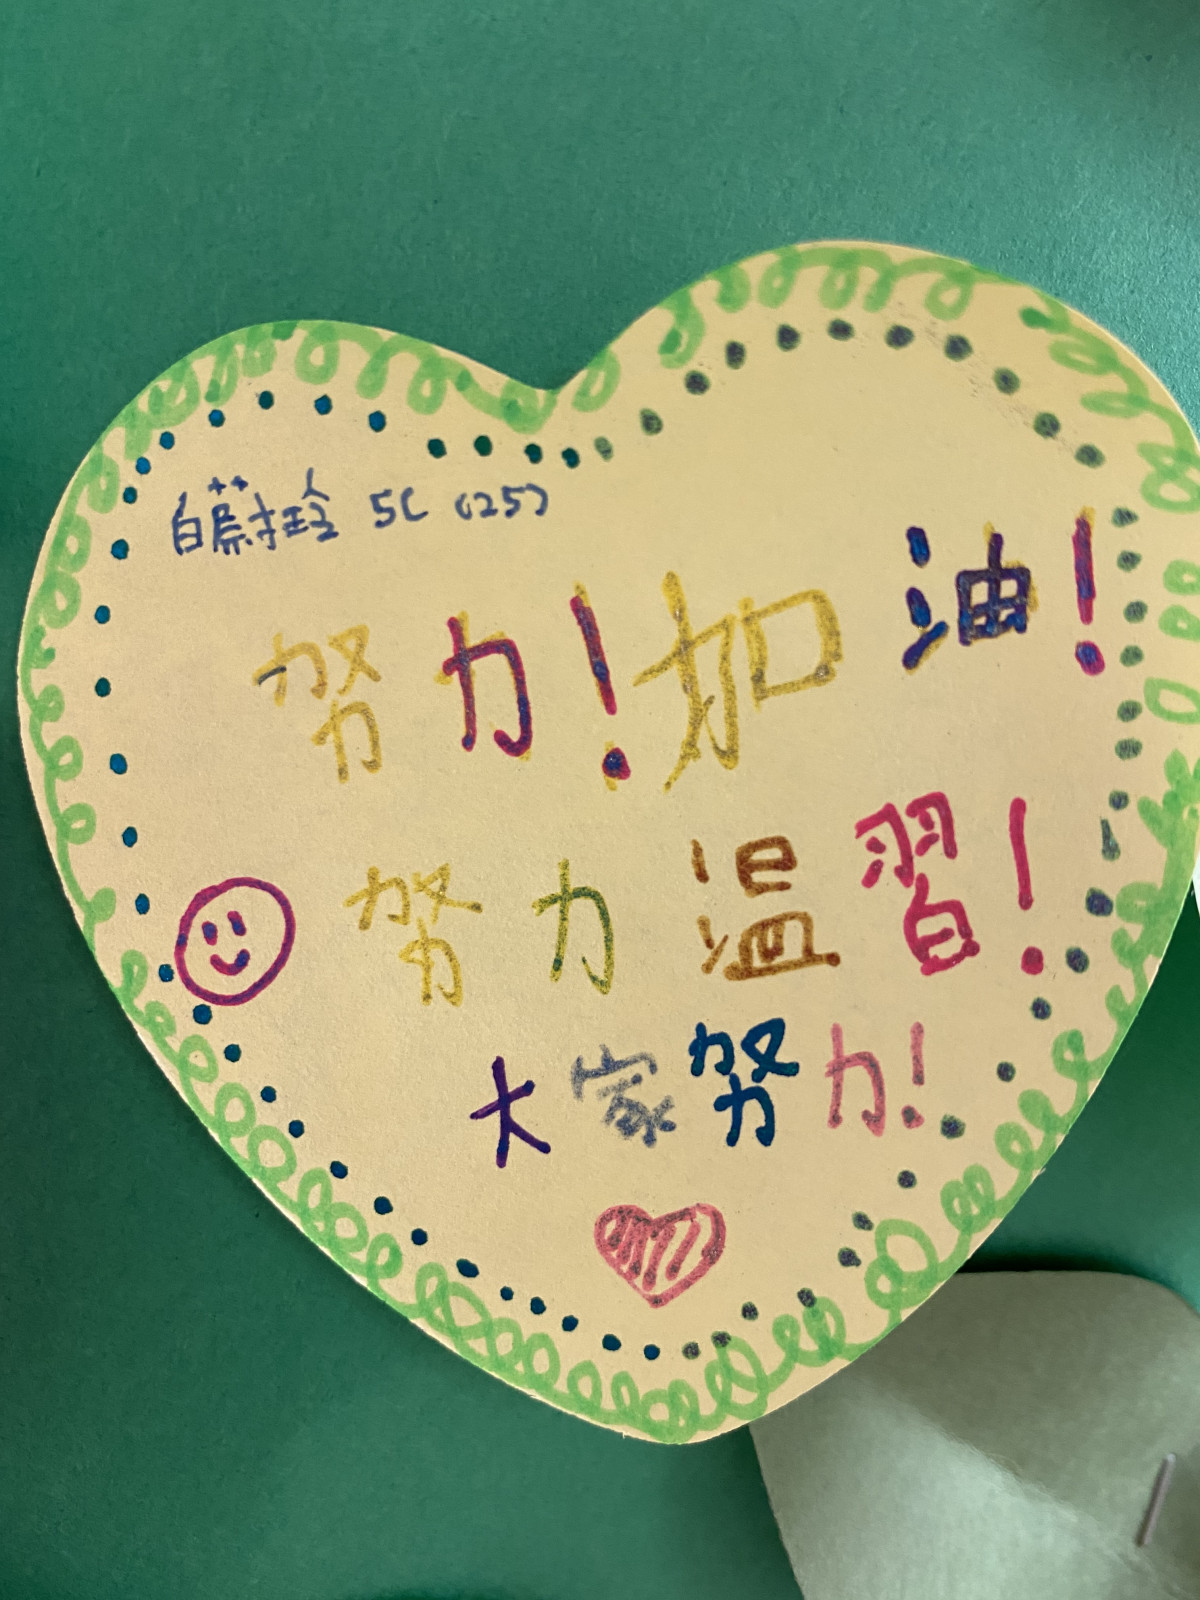 5C (25)
努力!加油!
努力温習!
大家努力!